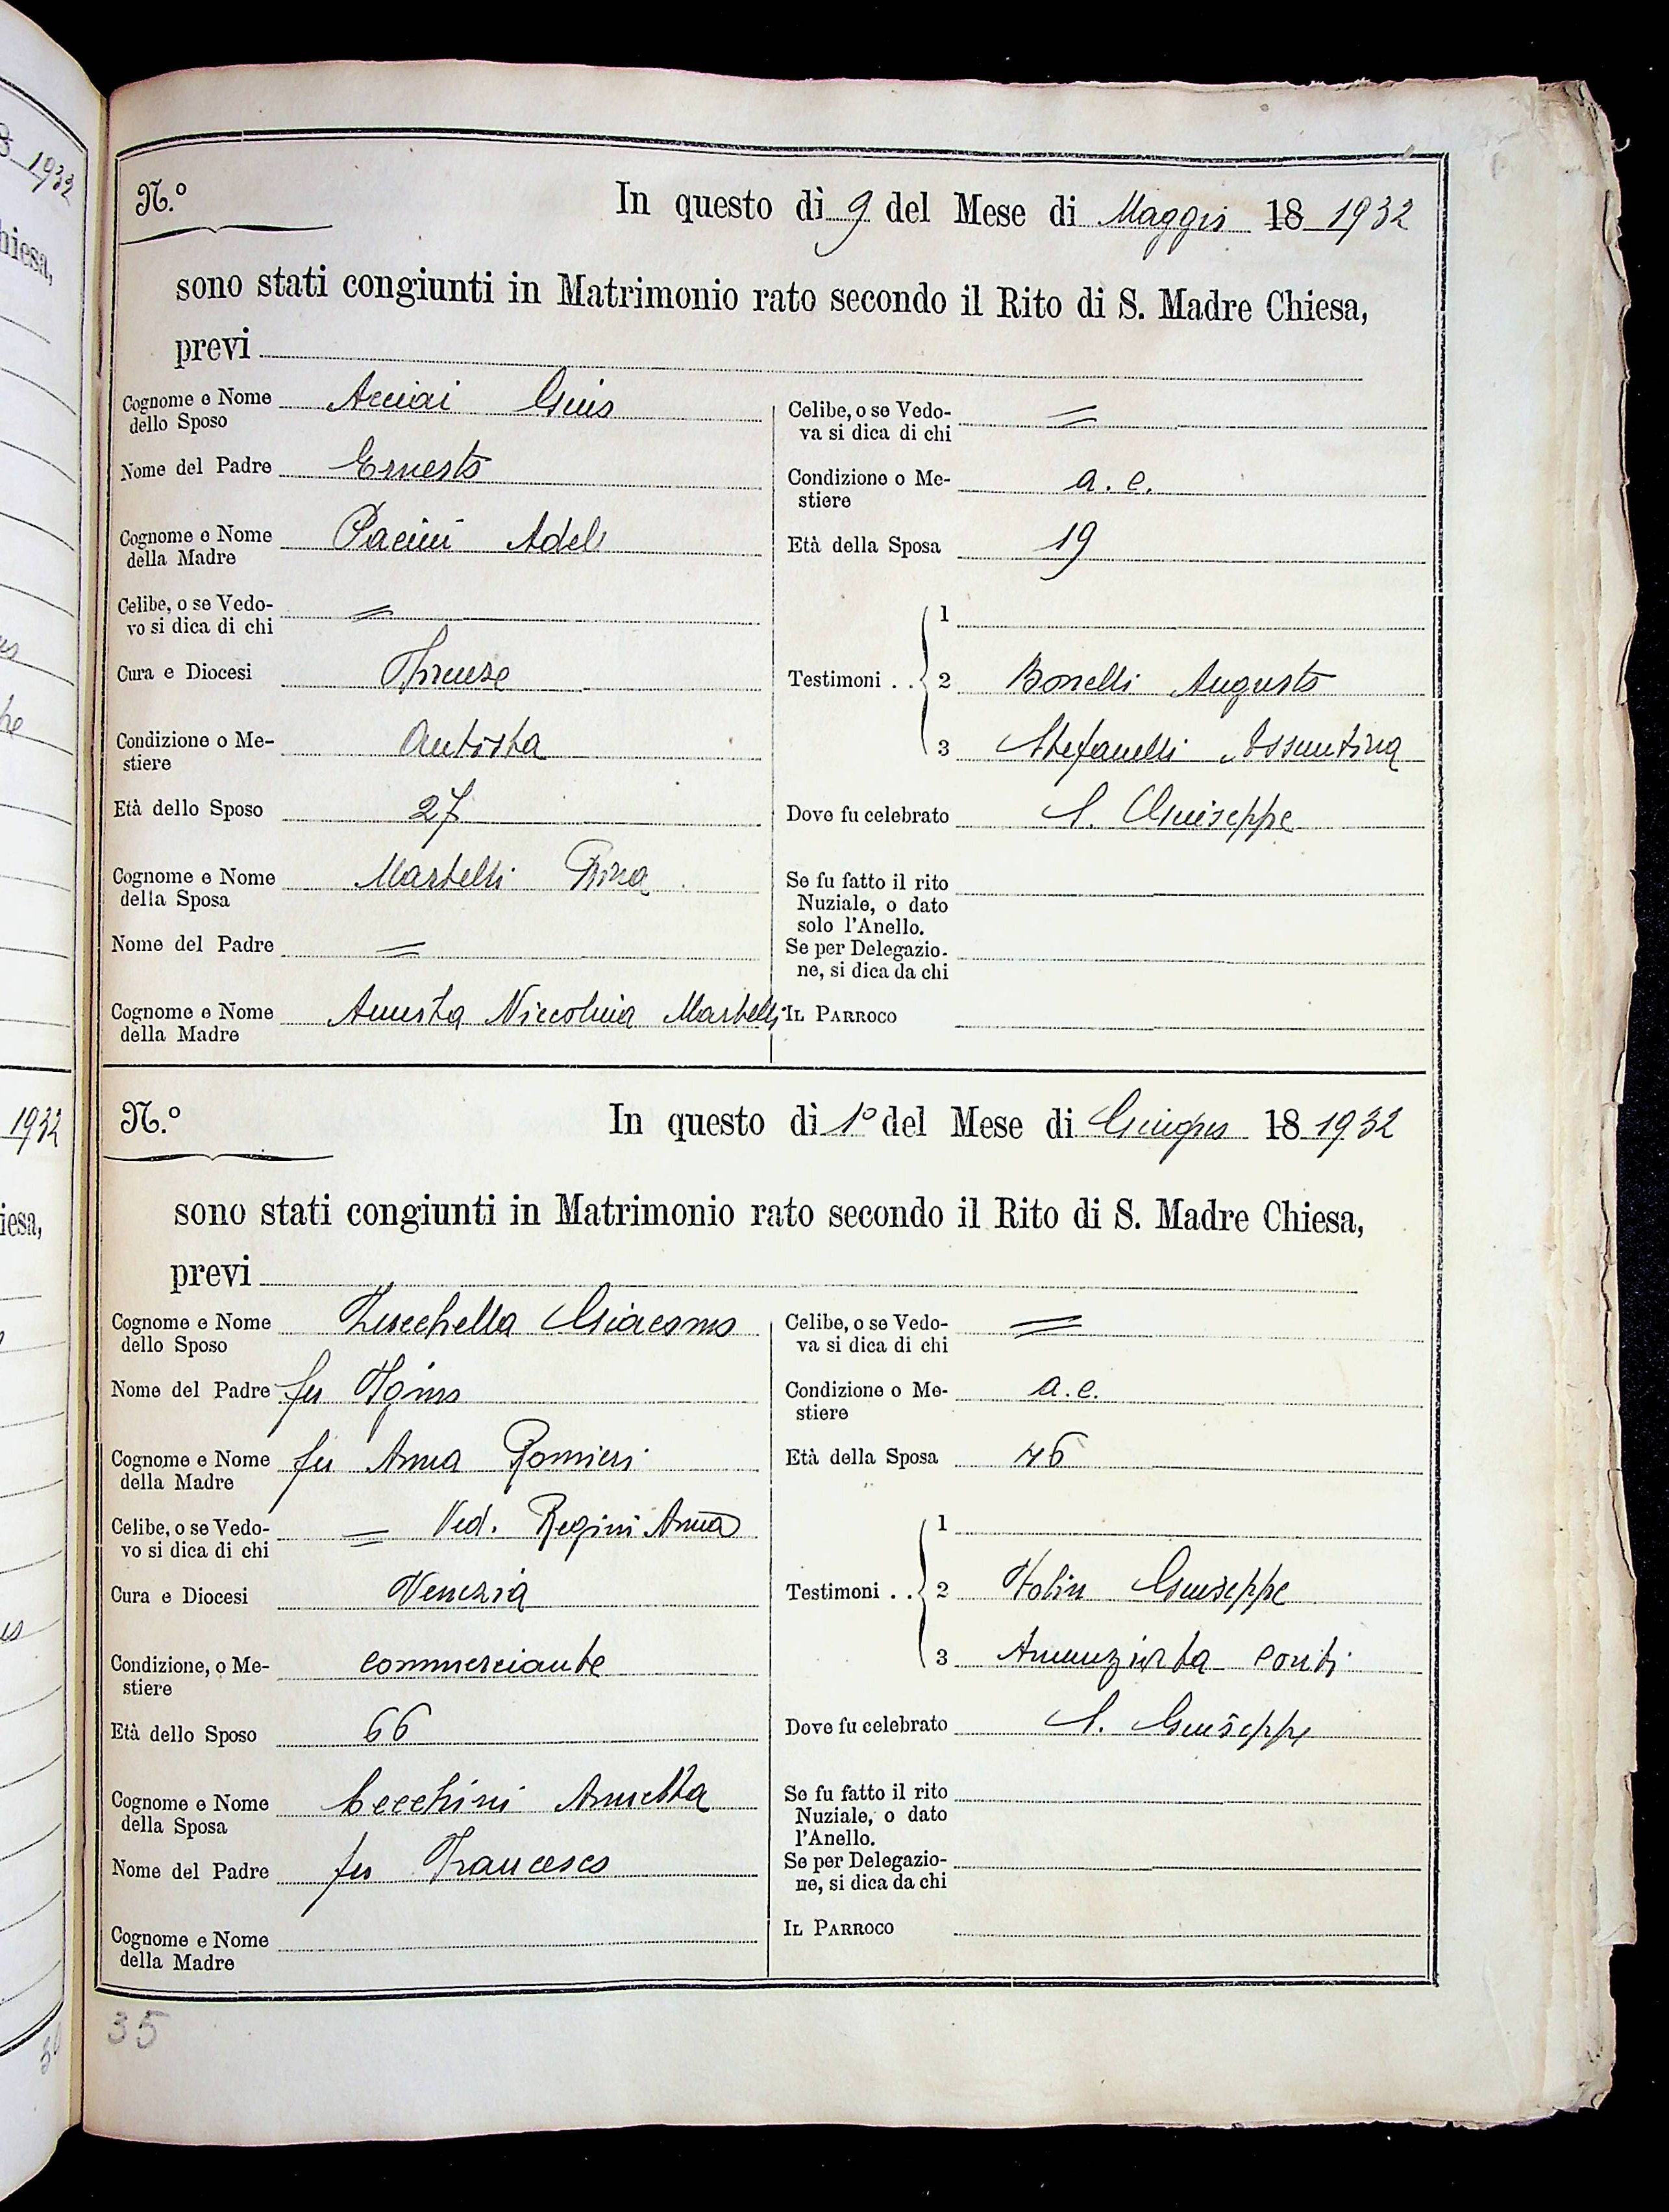 8 1932
hiesa,
1932
iesa,
N.º In questo dì 9 del Mese di Maggio 18 1932
sono stati congiunti in Matrimonio rato secondo il Rito di S. Madre Chiesa,
previ
Cognome e Nome dello Sposo Acciai Gino
Nome del Padre Ernesto
Cognome e Nome della Madre Pacini Adele
Celibe, o se Vedo-
vo si dica di chi =
Cura e Diocesi Firenze
Condizione o Me-
stiere Autista
Età dello Sposo 27
Cognome e Nome della Sposa Martelli Rina
Nome del Padre =
Cognome e Nome della Madre Niccolina Martelli
Celibe, o se Vedo-
va si dica di chi =
Condizione o Me-
stiere a. c.
Età della Sposa 19
Testimoni . . 1
2 Bonelli Augusto
3 Stefanelli Assuntina
Dove fu celebrato S. Giuseppe
Se fu fatto il rito
Nuziale, o dato
solo l'Anello.
Se per Delegazio-
ne, si dica da chi
IL PARROCO
N.º In questo dì 1º del Mese di Giugno 18 1932
sono stati congiunti in Matrimonio rato secondo il Rito di S. Madre Chiesa,
previ
Cognome e Nome dello Sposo Zucchella Giacomo
Nome del Padre fu Igino
Cognome e Nome della Madre fu Anna Romieri
Celibe, o se Vedo-
vo si dica di chi = Ved. Regini Anna
Cura e Diocesi Venezia
Condizione, o Me-
stiere commerciante
Età dello Sposo 66
Cognome e Nome della Sposa Cecchini Annetta
Nome del Padre fu Francesco
Cognome e Nome
della Madre
Celibe, o se Vedo-
va si dica di chi =
Condizione o Me-
stiere a. c.
Età della Sposa 46
Testimoni . . 1
2 Giuseppe
3 Annunziata Conti
Dove fu celebrato S. Giuseppe
Se fu fatto il rito
Nuziale, o dato
l'Anello.
Se per Delegazio-
ne, si dica da chi
IL PARROCO
35